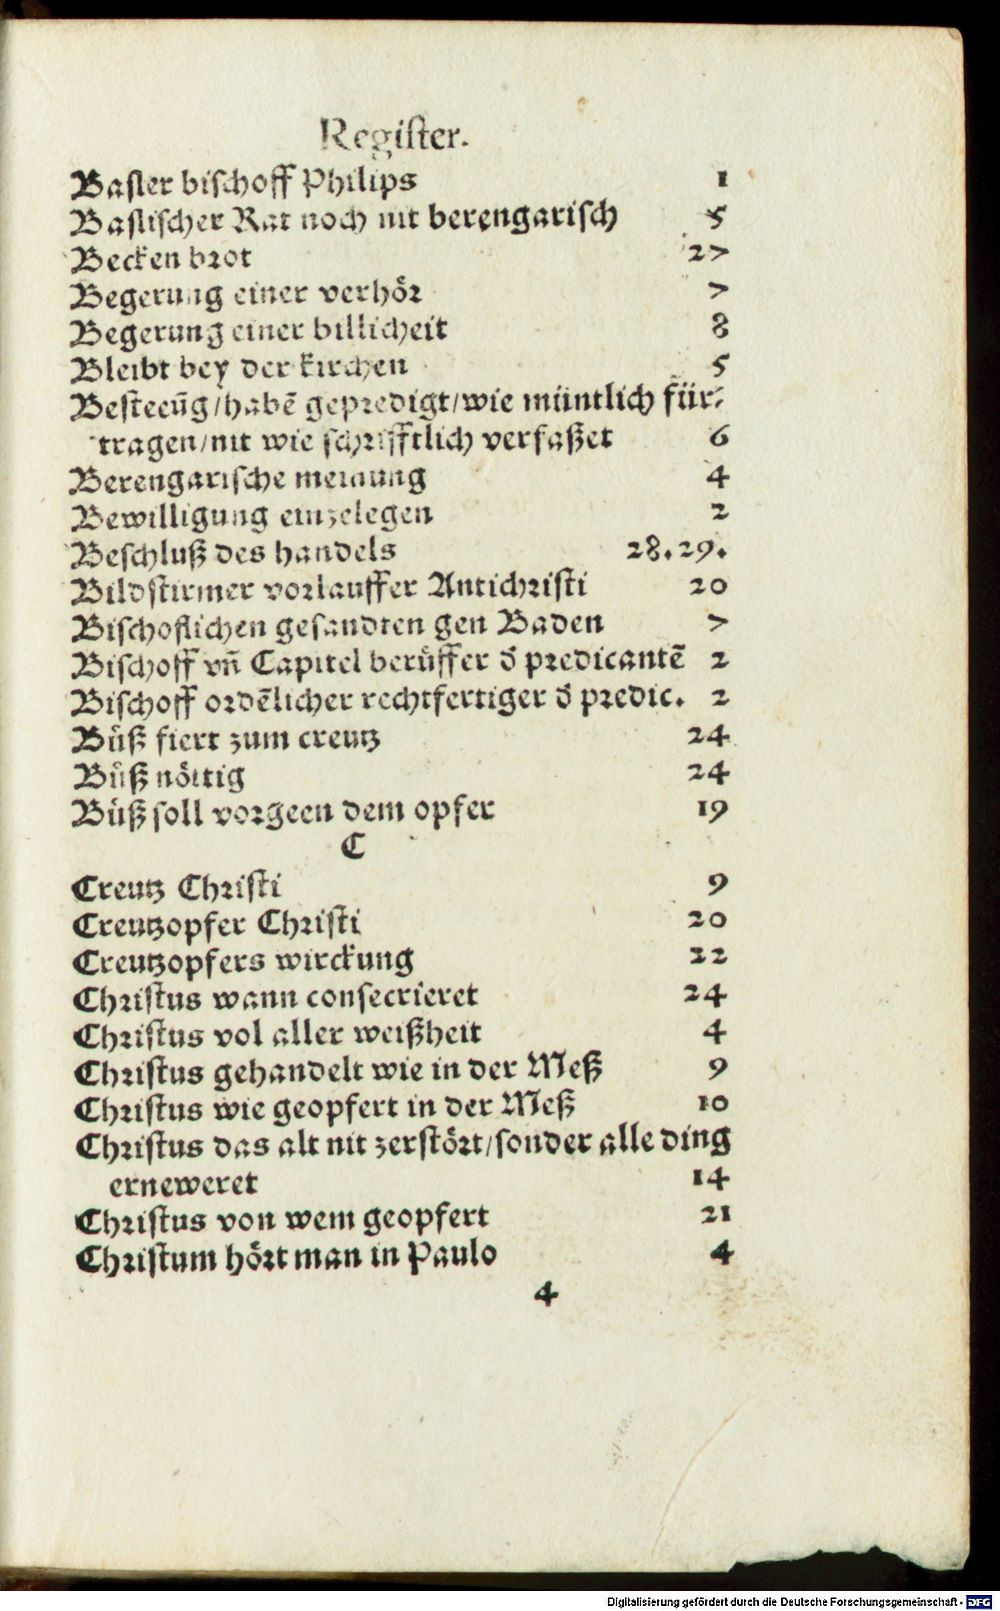 Register.
Basler bischoff Philips 1
Baslischer Rat noch nit berengarisch 5
Becken brot 27
Begerung einer verhöꝛ 7
Begerung einer billicheit 8
Bleibt bey der kirchen 5
Besteeūg/habē gepꝛedigt/wie müntlich für⸗
tragen/nit wie schꝛifftlich verfaßet 6
Berengarische meinung 4
Bewilligung einzelegen 2
Beschluß des handels 28.29.
Bildstirmer voꝛlauffer Antichꝛisti 20
Bischoflichen gesandten gen Baden 7
Bischoff vñ Capitel berůffer d̄ pꝛedicantē 2
Bischoff oꝛdēlicher rechtfertiger d̄ pꝛedic. 2
Bůß fiert zum creutz 24
Bůß nöttig 24
Bůß soll voꝛgeen dem opfer 19
C
Creutz Chꝛisti 9
Creutzopfer Chꝛisti 20
Creutzopfers wirckung 22
Chꝛistus wann consecrieret 24
Chꝛistus vol aller weißheit 4
Chꝛistus gehandelt wie in der Meß 9
Chꝛistus wie geopfert in der Meß 10
Chꝛistus das alt nit zerstöꝛt/sonder alle ding
erneweret 14
Chꝛistus von wem geopfert 21
Chꝛistum höꝛt man in Paulo 4
4
Digitalisierung gefördert durch die Deutsche Forschungsgemeinschaft - DFG